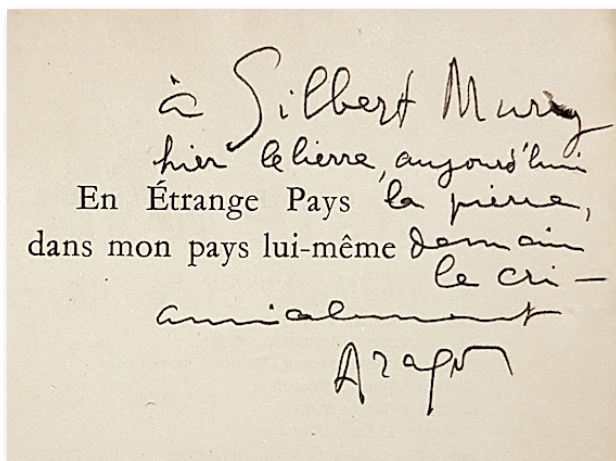 à Gilbert Mury
hier le lierre, aujourd'hui
En Étrange Pays la pierre,
dans mon pays lui-même demain
le cri –
amicalement
Aragon